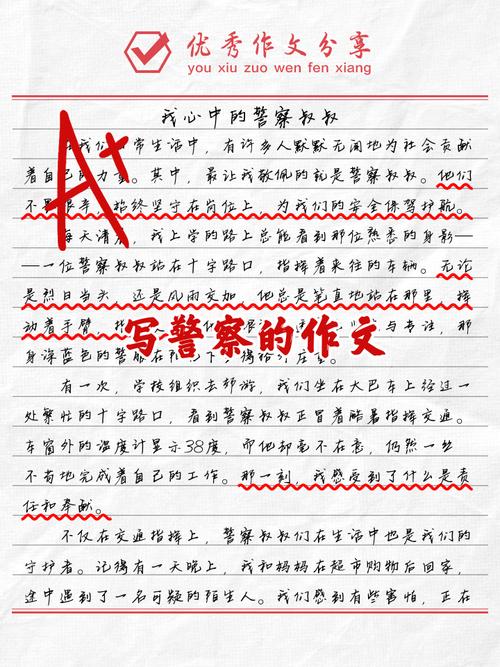 优秀作文分享
you xiu zuo wen fen xiang
我心中的警察叔叔
A+
我们 常生活中，有许多人默默无闻地为社会贡献
着自己的力量。其中，最让我敬佩的就是警察叔叔。他们
不畏艰辛，始终坚守在岗位上，为我们的安全保驾护航。
每天清晨，我上学的路上总能看到那位熟悉的身影—
—一位警察叔叔站在十字路口，指挥着来往的车辆。无论
是烈日当头，还是风雨交加，他总是笔直地站在那里，挥
动着手臂，指 与专注，那
写警察的作文
身深蓝色的警服在 庄重。
有一次，学校组织去郊游，我们坐在大巴车上经过一
处繁忙的十字路口，看到警察叔叔正冒着酷暑指挥交通。
车窗外的温度计显示38度，而他却毫不在意，仍然一丝
不苟地完成着自己的工作。那一刻，我感受到了什么是责
任和奉献。
不仅在交通指挥上，警察叔叔们在生活中也是我们的
守护者。记得有一天晚上，我和妈妈在超市购物后回家，
途中遇到了一名可疑的陌生人。我们感到有些害怕，正在